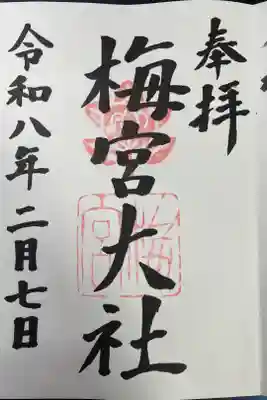 奉拝
梅宮大社
梅宮
令和八年二月七日